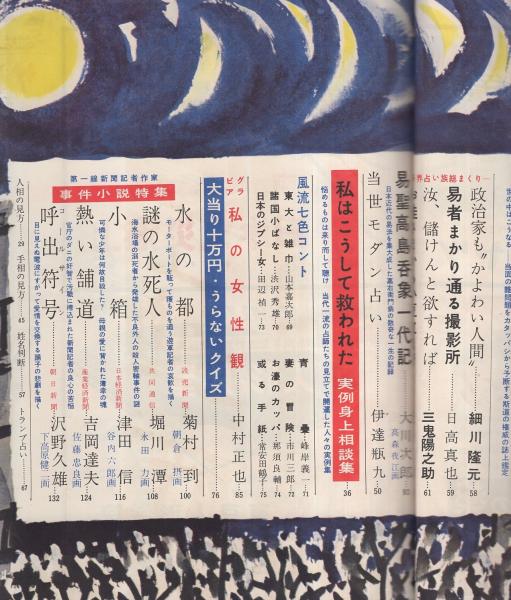 政治家も〝かよわい人間〟 細川隆元 58
易者まかり通る撮影所 日高真也 59
汝、儲けんと欲すれば 三鬼陽之助 61
易聖高島呑象一代記
日本近代の易法を集大成した高島嘉右衛門の数奇な一生の記録
当世モダン占い 伊達瓶九 50
私はこうして救われた 実例身上相談集 36
悩めるものは来り而して聴け 当代一流の占師たちの見立てで開運した人々の実例集
風流七色コント
東大と雑巾 山本嘉次郎 69
諸国小ばなし 渋沢秀雄 70
日本のジプシー女 田辺禎一 73
青畳 峰岸義一 71
妻の冒険 市川三郎 72
お濠のカッパ 那須良輔 74
或る手紙 常安田鶴子 75
グラビア 私の女性観 中村正也 85
大当り十万円・うらないクイズ 76
第一線新聞記者作家
事件小説特集
水の都 読売新聞 菊村到 朝倉摂画 100
モーターボートを駈って獲ものを追う遊軍記者の哀歓を描く
謎の水死人 共同通信 堀川潭 永田力画 108
海水浴場の溺死者から発端した不良外人の殺人密輸事件の謎
小箱 日本経済新聞 津田信 谷内六郎画 116
可憐な少年は何故自殺した? 母親の愛に背かれた薄幸の魂
熱い舗道 産業経済新聞 吉岡達夫 佐藤忠良画 124
官庁のダニの奸智で汚職に捲込まれた新聞記者の良心の苦悩
呼出符号 朝日新聞 沢野久雄 下高原健二画 132
目に見えぬ電波にすがって愛情を交換する踊子の悲劇を描く
人相の見方 29 手相の見方 45 姓名判断 57 トランプ占い 67